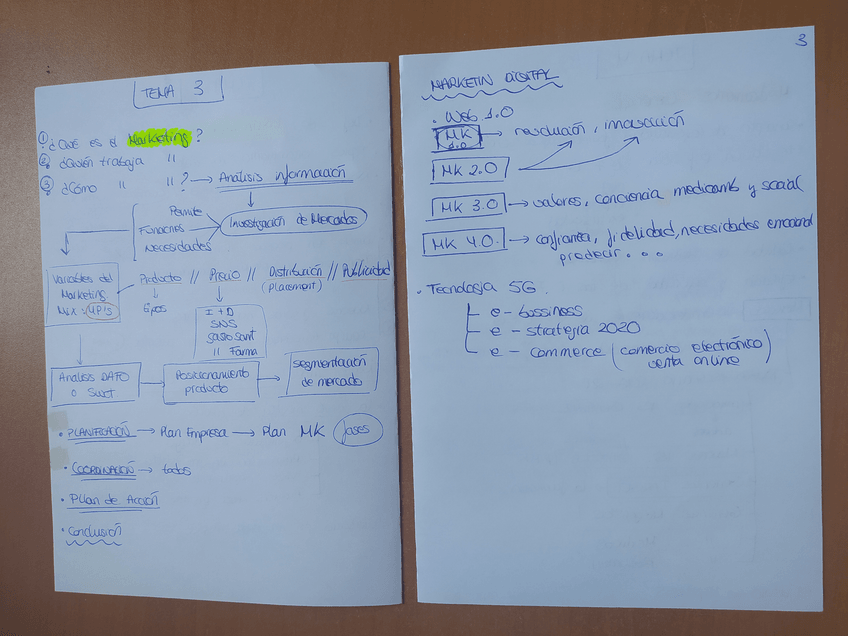 TEMA 3
① ¿Qué es el Marketing?
② ¿Quién trabaja "
③ ¿Cómo " "? → Análisis información
Permite
Funciones
Necesidades
Investigación de Mercados
Variables del Marketing Mix: 4P's
Producto // Precio // Distribución // Publicidad
(Placement)
tipos
I + D
SNS
Gasto Sanit
" Farma
Analisis DAFO o Swot → Posicionamiento producto → Segmentación de mercado
• PLANIFICACIÓN → Plan Empresa → Plan MK fases
• COORDINACIÓN → todos
• Pllan de Acción
• Conclusión
3
MARKETIN DIGITAL
• Web 1.0
MK 1.0 → revolución, innovación
MK 2.0
MK 3.0 → valores, conciencia medioamb y social
MK 4.0. → confianza, fidelidad, necesidades emocional
predecir...
• Tecnología 5G.
e - bussiness
e - strategia 2020
e - commerce (comercio electrónico
venta online)